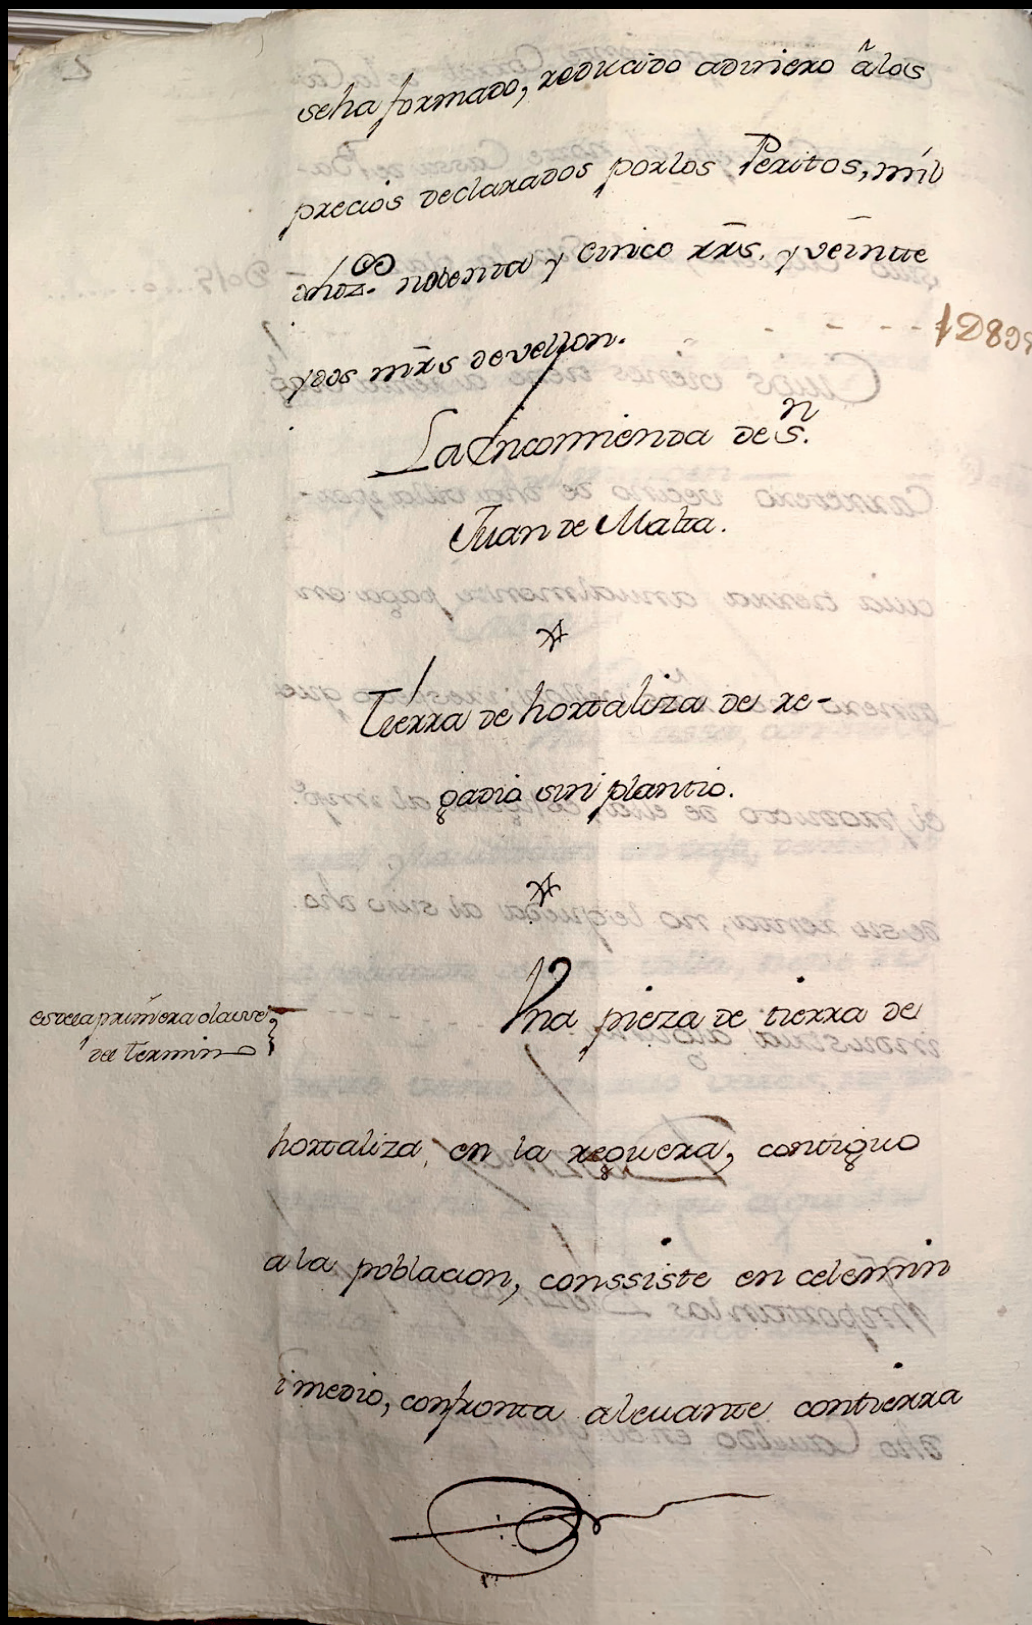 seha formado, reducido adinero âlos
precios declarados porlos Peritos, mil
noventa y cinco rr̄s. y veinte
y dos mr̄s de vellon.
La Encomienda de S.n
Juan de Malta.
Tierra de hortaliza de re-
gadio sin plantio.
Una pieza de tierra de
esdela primera clase
del termino
hortaliza, en la reguera, contiguo
ala poblacion, conssiste en celemin
i medio, confronta alevante contierra